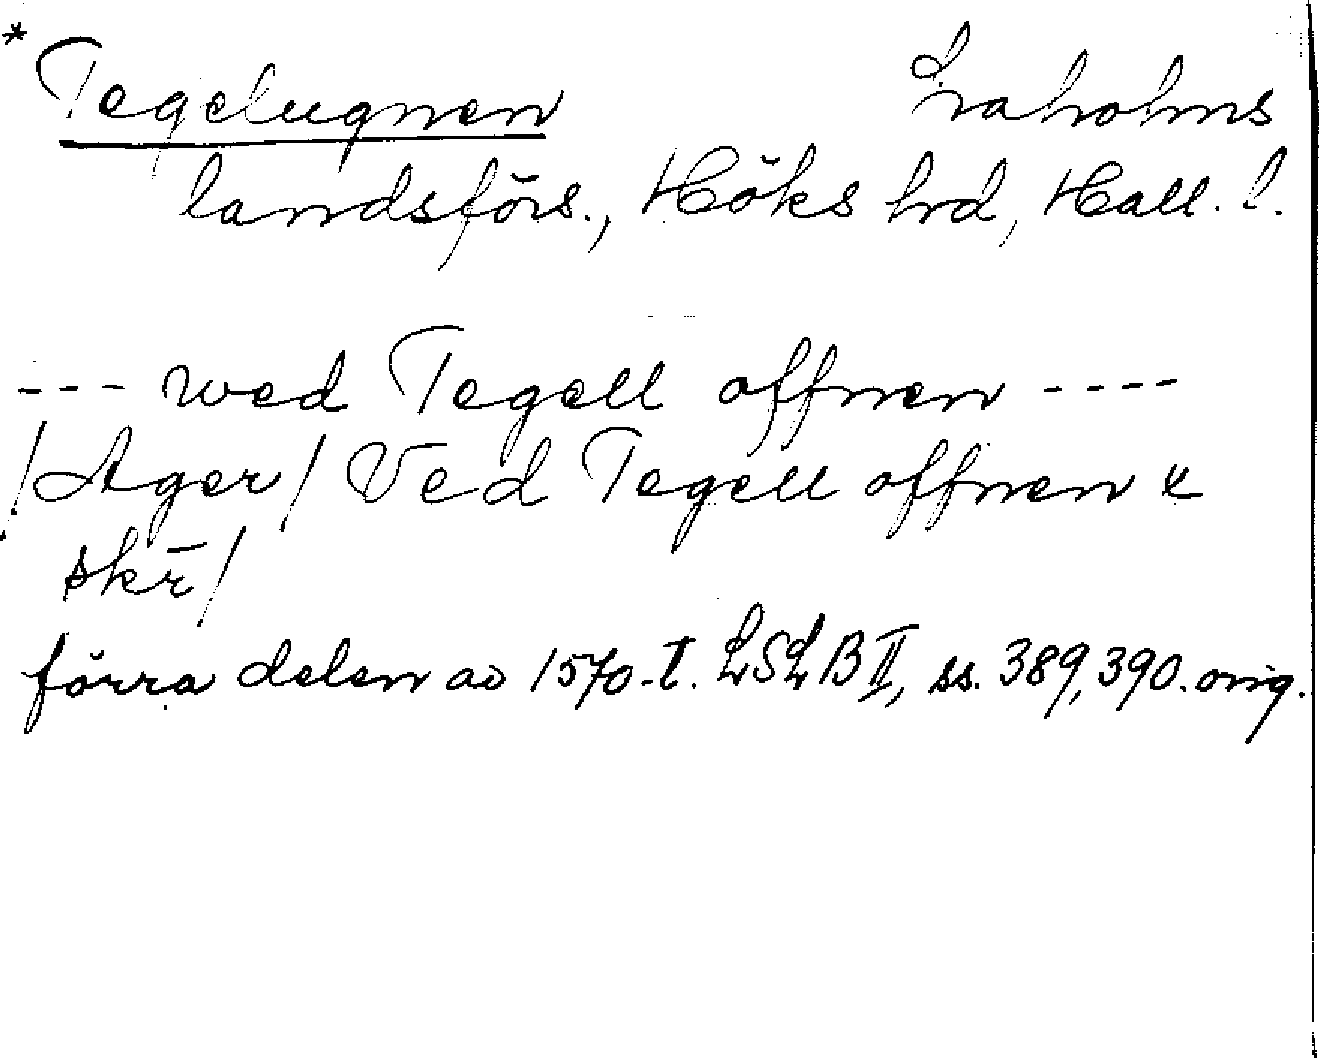 * Tegelugnen Laholms
landsförs., Höks hrd, Hall. l.
--- wed Tegell offnen ----
/Ager/ Ved Tegell offnen 4
skr̄/
förra delen av 1570-t. LSLB II, ss. 389, 390. orig.